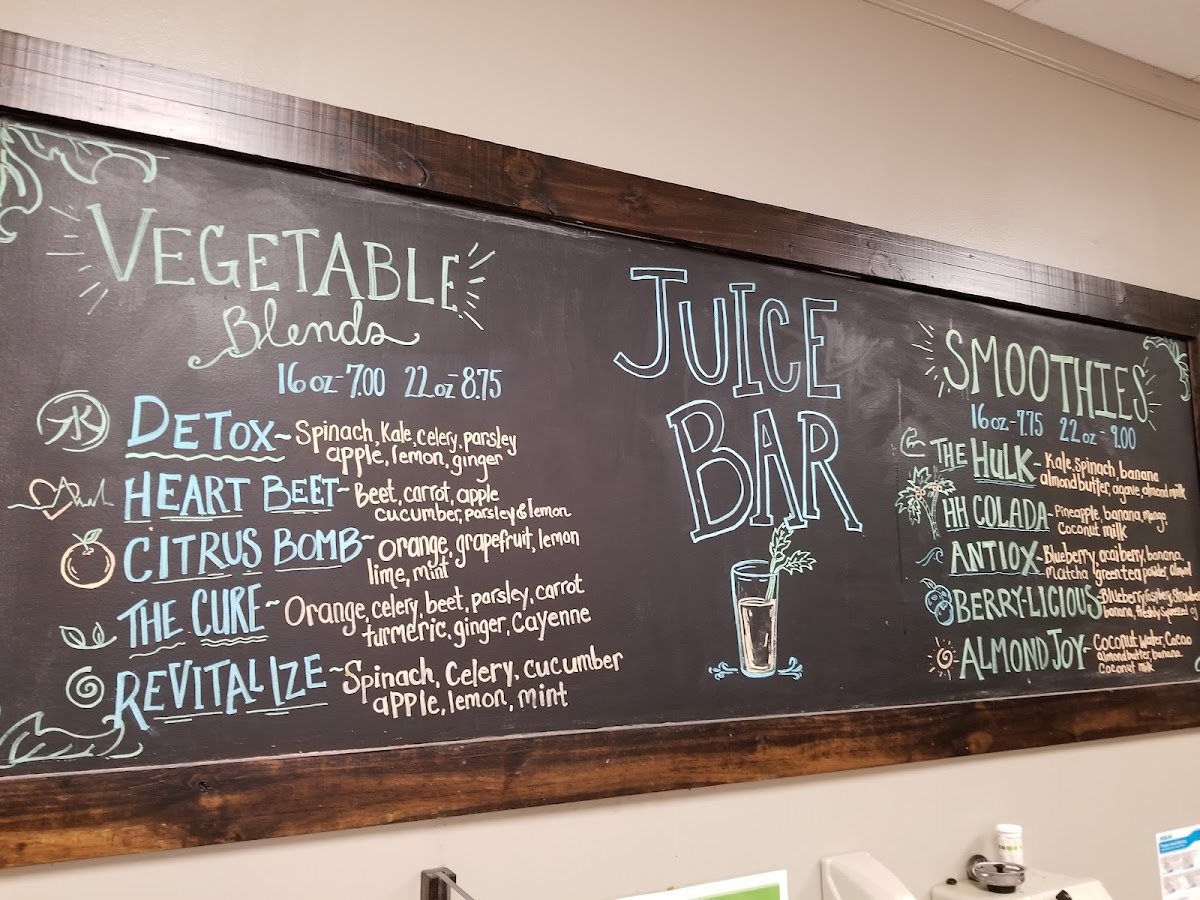 VEGETABLE
Blends
16 oz - 7.00 22 oz - 8.75
DETOX~ Spinach, Kale, celery, parsley
apple, lemon, ginger
HEART BEET~ Beet, carrot, apple
cucumber, parsley & lemon
CITRUS BOMB~ orange, grapefruit, lemon
lime, mint
THE CURE~ Orange, celery, beet, parsley, carrot
turmeric, ginger, Cayenne
REVITALIZE~ Spinach, Celery, cucumber
apple, lemon, mint
JUICE
BAR
SMOOTHIES
16 oz - 7.75 22 oz - 9.00
THE HULK~ Kale, spinach, banana
almond butter, agave, almond milk
HH COLADA~ Pineapple, banana, mango
Coconut milk
ANTIOX~ Blueberry, acai berry, banana
Matcha green tea powder, almond
BERRY-LICIOUS~ Blueberry,
banana, freshly squeezed
ALMOND JOY~ Coconut water, Cacao
almond butter, banana
Coconut milk